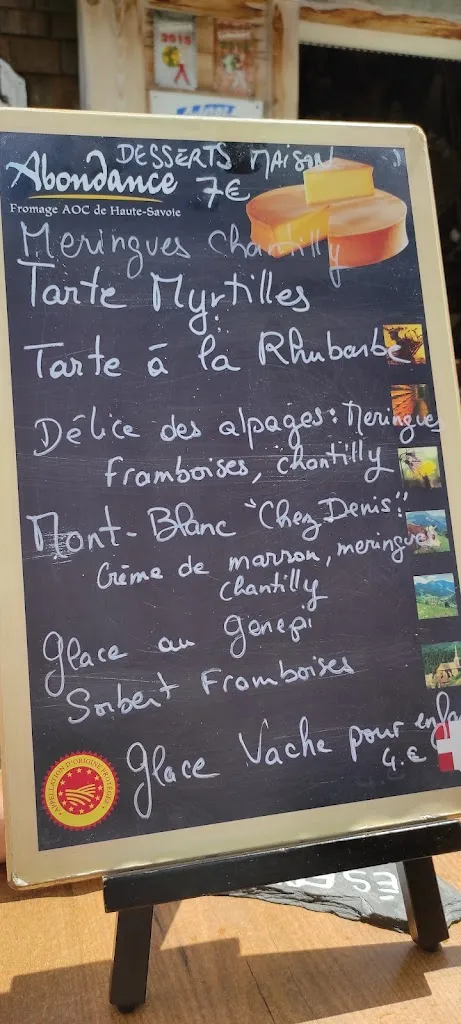 2019
DESSERTS MAISON
Abondance
7€
Fromage AOC de Haute-Savoie
Meringues Chantilly
Tarte Myrtilles
Tarte à la Rhubarbe
Délice des alpages: Meringues
framboises, chantilly
Mont-Blanc "Chez Denis":
Crème de marron, meringues
chantilly
Glace au genepi
Sorbert Framboises
Glace Vache pour enfa
4.€
APPELLATION D'ORIGINE PROTÉGÉE